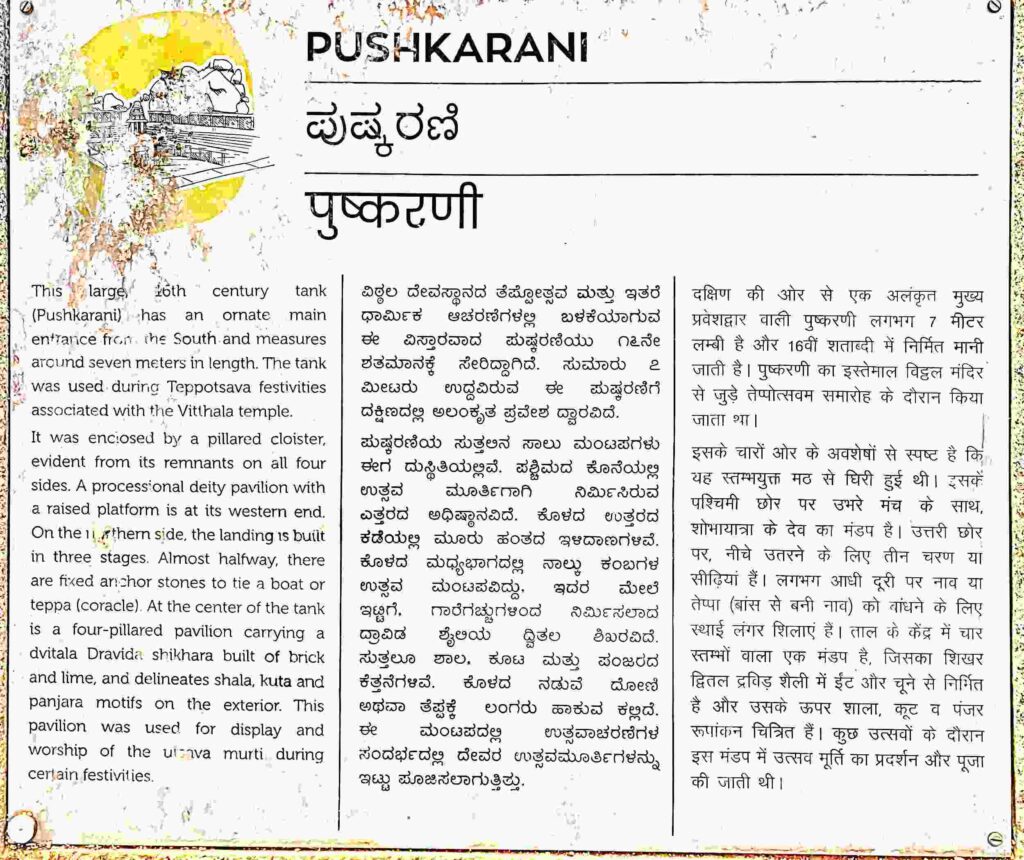 PUSHKARANI
ಪುಷ್ಕರಣಿ
पुष्करणी
This large, 16th century tank
(Pushkarani) has an ornate main
entrance from the South and measures
around seven meters in length. The tank
was used during Teppotsava festivities
associated with the Vitthala temple.
It was enclosed by a pillared cloister,
evident from its remnants on all four
sides. A processional deity pavilion with
a raised platform is at its western end.
On the northern side, the landing is built
in three stages. Almost halfway, there
are fixed anchor stones to tie a boat or
teppa (coracle). At the center of the tank
is a four-pillared pavilion carrying a
dvitala Dravida shikhara built of brick
and lime, and delineates shala, kuta and
panjara motifs on the exterior. This
pavilion was used for display and
worship of the utsava murti during
certain festivities.
ವಿಠ್ಠಲ ದೇವಸ್ಥಾನದ ತೆಪ್ಪೋತ್ಸವ ಮತ್ತು ಇತರೆ
ಧಾರ್ಮಿಕ ಆಚರಣೆಗಳಲ್ಲಿ ಬಳಕೆಯಾಗುವ
ಈ ವಿಸ್ತಾರವಾದ ಪುಷ್ಕರಣಿಯು ೧೬ನೇ
ಶತಮಾನಕ್ಕೆ ಸೇರಿದ್ದಾಗಿದೆ. ಸುಮಾರು ೭
ಮೀಟರು ಉದ್ದವಿರುವ ಈ ಪುಷ್ಕರಣಿಗೆ
ದಕ್ಷಿಣದಲ್ಲಿ ಅಲಂಕೃತ ಪ್ರವೇಶ ದ್ವಾರವಿದೆ.
ಪುಷ್ಕರಣಿಯ ಸುತ್ತಲಿನ ಸಾಲು ಮಂಟಪಗಳು
ಈಗ ದುಸ್ಥಿತಿಯಲ್ಲಿವೆ. ಪಶ್ಚಿಮದ ಕೊನೆಯಲ್ಲಿ
ಉತ್ಸವ ಮೂರ್ತಿಗಾಗಿ ನಿರ್ಮಿಸಿರುವ
ಎತ್ತರದ ಅಧಿಷ್ಠಾನವಿದೆ. ಕೊಳದ ಉತ್ತರದ
ಕಡೆಯಲ್ಲಿ ಮೂರು ಹಂತದ ಇಳಿದಾಣಗಳಿವೆ.
ಕೊಳದ ಮಧ್ಯಭಾಗದಲ್ಲಿ ನಾಲ್ಕು ಕಂಬಗಳ
ಉತ್ಸವ ಮಂಟಪವಿದ್ದು, ಇದರ ಮೇಲೆ
ಇಟ್ಟಿಗೆ, ಗಾರೆಗಚ್ಚುಗಳಿಂದ ನಿರ್ಮಿಸಲಾದ
ದ್ರಾವಿಡ ಶೈಲಿಯ ದ್ವಿತಲ ಶಿಖರವಿದೆ.
ಸುತ್ತಲೂ ಶಾಲ, ಕೂಟ ಮತ್ತು ಪಂಜರದ
ಕೆತ್ತನೆಗಳಿವೆ. ಕೊಳದ ನಡುವೆ ದೋಣಿ
ಅಥವಾ ತೆಪ್ಪಕ್ಕೆ ಲಂಗರು ಹಾಕುವ ಕಲ್ಲಿದೆ.
ಈ ಮಂಟಪದಲ್ಲಿ ಉತ್ಸವಾಚರಣೆಗಳ
ಸಂದರ್ಭದಲ್ಲಿ ದೇವರ ಉತ್ಸವಮೂರ್ತಿಗಳನ್ನು
ಇಟ್ಟು ಪೂಜಿಸಲಾಗುತ್ತಿತ್ತು.
दक्षिण की ओर से एक अलंकृत मुख्य
प्रवेशद्वार वाली पुष्करणी लगभग 7 मीटर
लम्बी है और 16वीं शताब्दी में निर्मित मानी
जाती है। पुष्करणी का इस्तेमाल विट्ठल मंदिर
से जुड़े तेप्पोत्सवम समारोह के दौरान किया
जाता था।
इसके चारों ओर के अवशेषों से स्पष्ट है कि
यह स्तम्भयुक्त मठ से घिरी हुई थी। इसके
पश्चिमी छोर पर उभरे मंच के साथ,
शोभायात्रा के देव का मंडप है। उत्तरी छोर
पर, नीचे उतरने के लिए तीन चरण या
सीढ़ियां हैं। लगभग आधी दूरी पर नाव या
तेप्पा (बांस से बनी नाव) को बांधने के लिए
स्थाई लंगर शिलाएं हैं। ताल के केंद्र में चार
स्तम्भों वाला एक मंडप है, जिसका शिखर
द्वितल द्रविड़ शैली में ईंट और चूने से निर्मित
है और उसके ऊपर शाला, कूट व पंजर
रूपांकन चित्रित हैं। कुछ उत्सवों के दौरान
इस मंडप में उत्सव मूर्ति का प्रदर्शन और पूजा
की जाती थी।